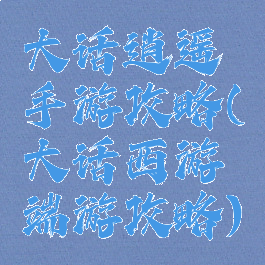 大话逍遥
手游攻略(
大话西游
端游攻略)